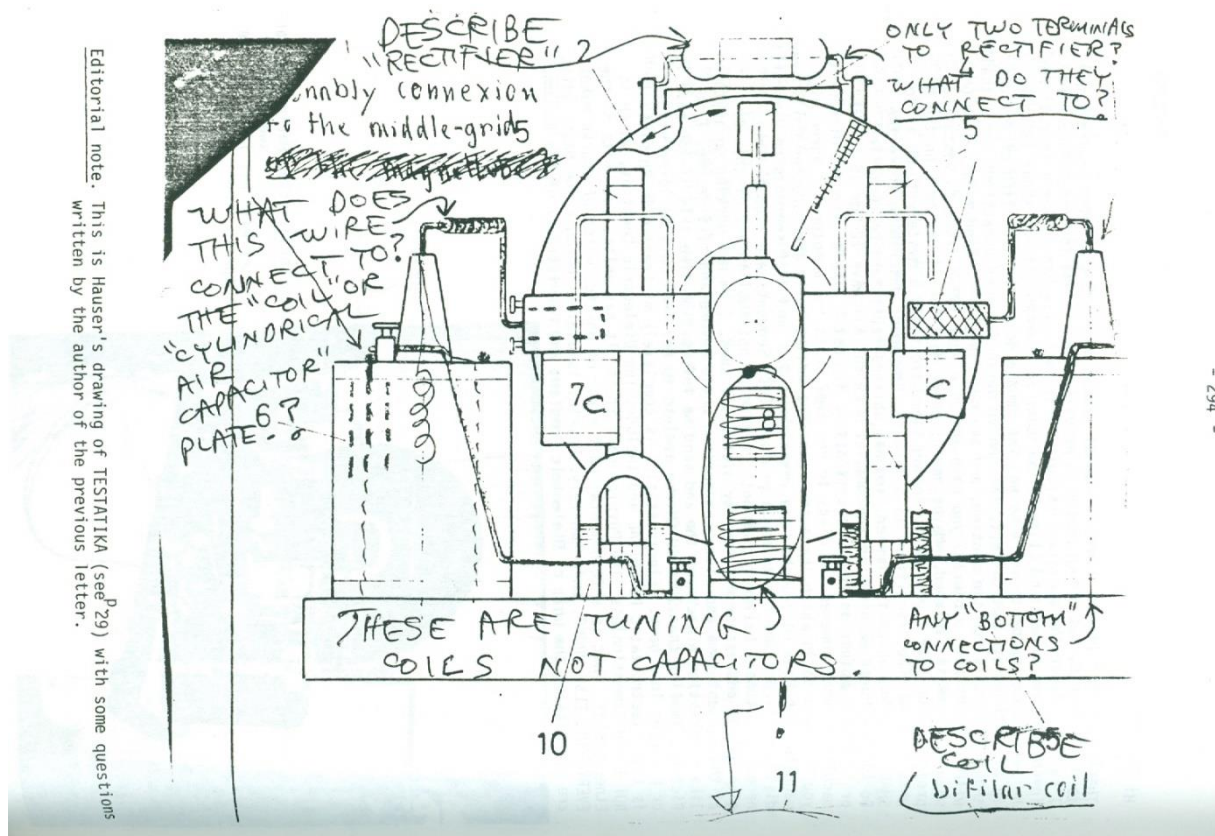 DESCRIBE
"RECTIFIER" 2
connexion
to the middle-grid5
ONLY TWO TERMINALS
TO RECTIFIER?
4
WHAT DO THEY
CONNECT TO?
5
WHAT DOES
THIS WIRE
CONNECT TO?
THE "COIL" OR
"CYLINDRICAL
AIR
CAPACITOR"
6
PLATE.
7C
8
C
THESE ARE TUNING
COILS NOT CAPACITORS.
ANY "BOTTOM"
CONNECTIONS
TO COILS?
10
11
DESCRIBE
COIL
bifilar coil
Editorial note. This is Hauser's drawing of TESTATIKA (see P29) with some questions
written by the author of the previous letter.
- 294 -